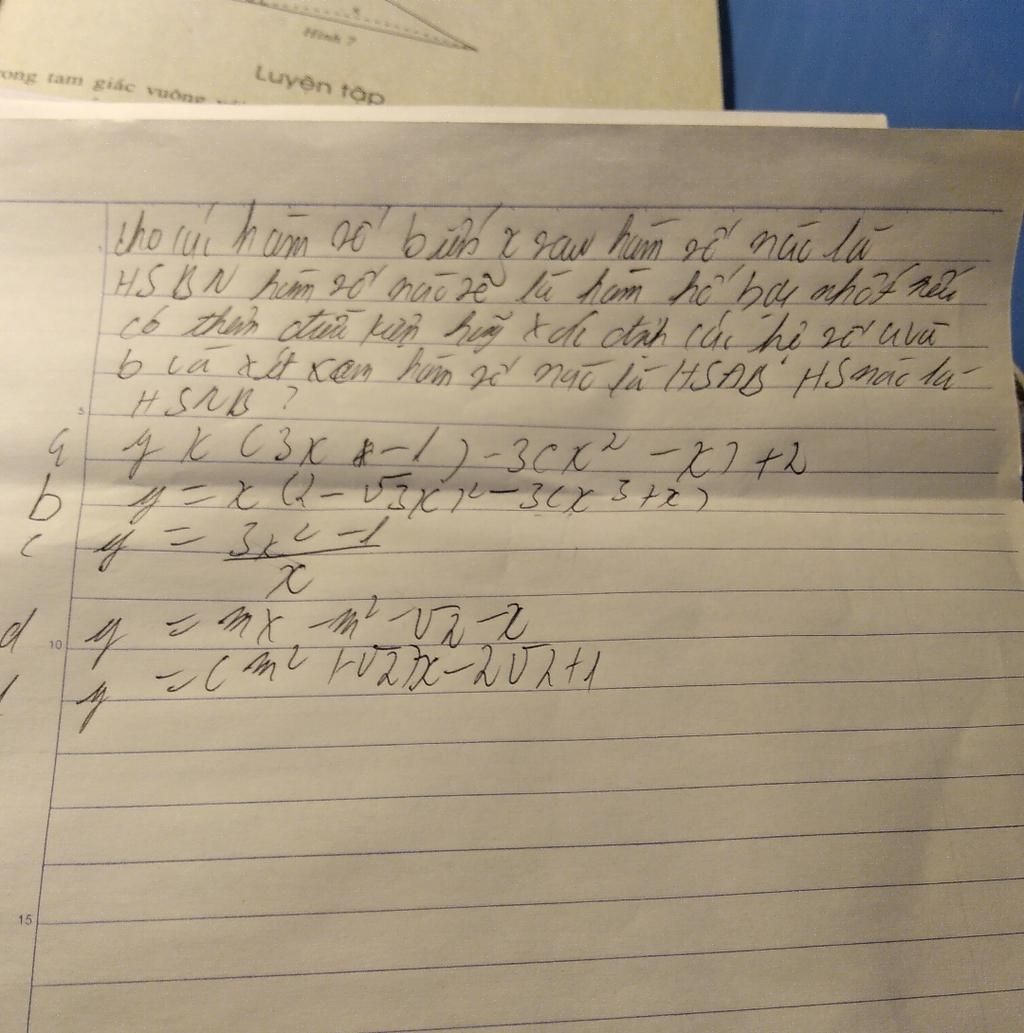 Hình 7
Luyện tập
ong tam giác vuông
cho các hàm số biến x sau hàm số nào là
HSBN hàm số nào sẽ là hàm hố bậc nhất nếu
có thêm điều kiện hãy xác định các hệ số a và
b và xét xem hàm số nào là HSĐB HS nào là
5
HSNB ?
a y x (3x -1) -3(x² -x) +2
b y = x (2 - √3x)² - 3(x³ +x)
c y = 3x² -1
x
d y = mx -m² -√2 -x
10
y = (m² +√2)x -2√2 +1
15